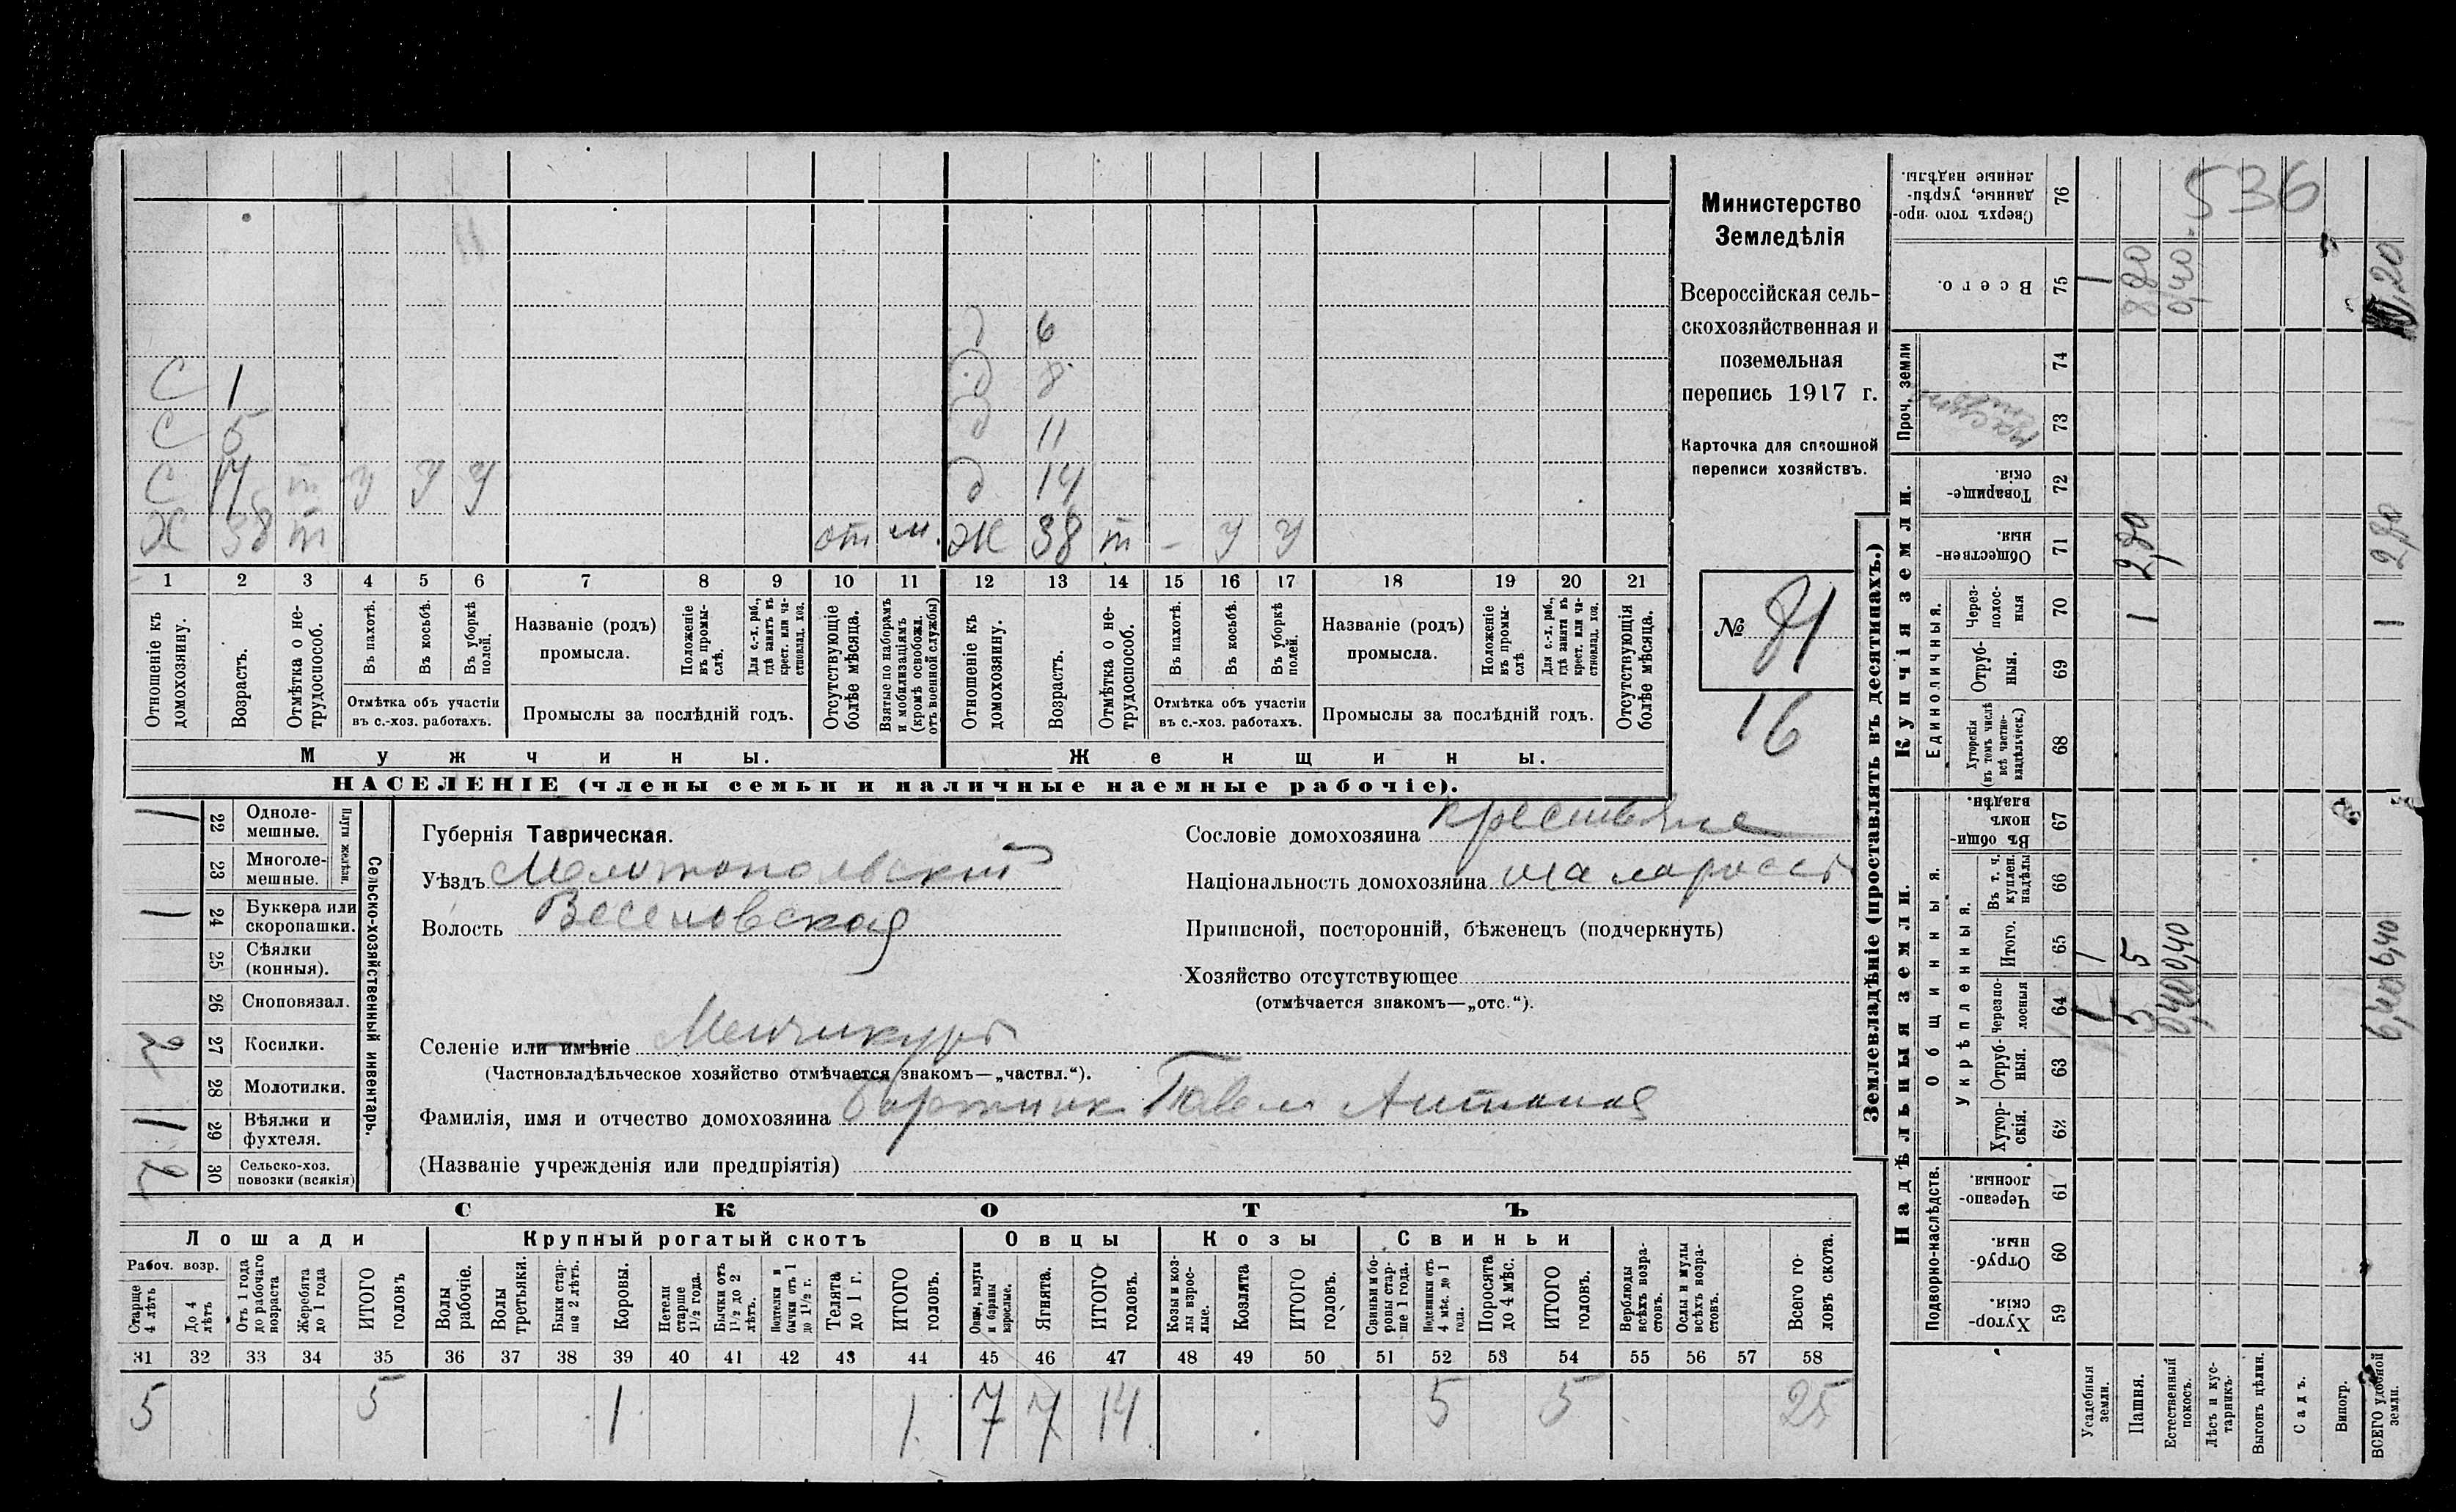 536
Министерство
Земледѣлія
Всероссійская сель-
скохозяйственная и
поземельная
перепись 1917 г.
Карточка для сплошной
переписи хозяйствъ.
№ 81
16
д 6
С 1 д 8
С 5 д 11
С 14 т У У У д 14
Х 38 т от м. Ж 38 т – У У
1 2 3 4 5 6 7 8 9 10 11 12 13 14 15 16 17 18 19 20 21
Отношеніе къ домохозяину.
Возрастъ.
Отмѣтка о не-трудоспособ.
Въ пахотѣ.
Въ косьбѣ.
Въ уборкѣ полей.
Отмѣтка объ участіи
въ с.-хоз. работахъ.
Названіе (родъ)
промысла.
Положеніе въ промы-слѣ.
Для с.-х. раб., гдѣ занятъ въ крест. или ча-стновлад. хоз.
Промыслы за послѣдній годъ.
Отсутствующіе болѣе мѣсяца.
Взятые по наборамъ и мобилизаціямъ (кромѣ освобожд. отъ военной службы)
Отношеніе къ домохозяину.
Возрастъ.
Отмѣтка о не-трудоспособ.
Въ пахотѣ.
Въ косьбѣ.
Въ уборкѣ полей.
Отмѣтка объ участіи
въ с.-хоз. работахъ.
Названіе (родъ)
промысла.
Положеніе въ промы-слѣ
Для с.-х. раб., гдѣ занята въ крест. или ча-стновлад. хоз.
Промыслы за послѣдній годъ.
Отсутствующія болѣе мѣсяца.
Мужчины.
Женщины.
НАСЕЛЕНІЕ (члены семьи и наличные наемные рабочіе).
Сельско-хозяйственный инвентарь.
Плуги желѣзн.
1 22 Одноле-мешные.
23 Многоле-мешные.
1 24 Буккера или скоропашки.
25 Сѣялки (конныя).
26 Сноповязал.
2 27 Косилки.
28 Молотилки.
1 29 Вѣялки и фухтеля.
2 30 Сельско-хоз. повозки (всякія)
Губернія Таврическая.
Уѣздъ Мелитопольскій
Волость Веселовская
Сословіе домохозяина крестьяне
Національность домохозяина малороссъ
Приписной, посторонній, бѣженецъ (подчеркнуть)
Хозяйство отсутствующее
(отмѣчается знакомъ—„отс.“).
Селеніе или имѣніе Менчикуръ
(Частновладѣльческое хозяйство отмѣчается знакомъ—„частвл.“).
Фамилія, имя и отчество домохозяина Павел Антонов
(Названіе учрежденія или предпріятія)
СКОТЪ
Лошади
Крупный рогатый скотъ
Овцы
Козы
Свиньи
Рабоч. возр.
Старше 4 лѣтъ
До 4 лѣтъ
Отъ 1 года до рабочаго возраста
Жеребята до 1 года
ИТОГО головъ
Волы рабочіе.
Волы третьяки.
Быки стар-ше 2 лѣтъ.
Коровы.
Нетели старше 1½ года.
Бычки отъ 1½ до 2 лѣтъ.
Подтелки и бычки отъ 1 до 1½ г.
Телята до 1 г.
ИТОГО головъ.
Овцы, валухи и бараны взрослые.
Ягнята.
ИТОГО головъ.
Козы и коз-лы взрос-лые.
Козлята
ИТОГО головъ.
Свиньи и бо-ровы стар-ше 1 года.
Подсвинки отъ 4 мѣс. до 1 года.
Поросята до 4 мѣс.
ИТОГО головъ.
Верблюды всѣхъ возра-стовъ.
Ослы и мулы всѣхъ возра-стовъ.
Всего го-ловъ скота.
31 32 33 34 35 36 37 38 39 40 41 42 43 44 45 46 47 48 49 50 51 52 53 54 55 56 57 58
5 5 1 1 7 7 14 5 5 25
Землевладѣніе (проставлять въ десятинахъ.)
Надѣльныя земли.
Купчія земли.
Проч. земли
Подворно-наслѣдств.
Общинныя.
Укрѣпленныя.
Единоличныя.
Хутор-скія. 59
Отруб-ныя. 60
Черезпо-лосныя. 61
Хутор-скія. 62
Отруб-ныя. 63
Черезпо-лосныя 64
Итого. 65
Въ т. ч. куплен. надѣлы 66
Въ общи-номъ владѣн. 67
Хуторскія (въ томъ числѣ всѣ частно-владѣльческ.) 68
Отруб-ныя. 69
Через-полос-ныя 70
Обществен-ныя. 71
Товарище-скія. 72
73
74
Всего. 75
Сверхъ того про-данные, укрѣп-ленные надѣлы. 76
Усадебныя земли. 1 1 1
Пашня. 5 5 1 2,80 8 80
Естественный покосъ. 0,40 0,40 0,40
Лѣсъ и кус-тарникъ.
Выгонъ цѣлин.
Садъ.
Виногр.
ВСЕГО удобной земли. 6,40 6,40 1 2,80 10,20